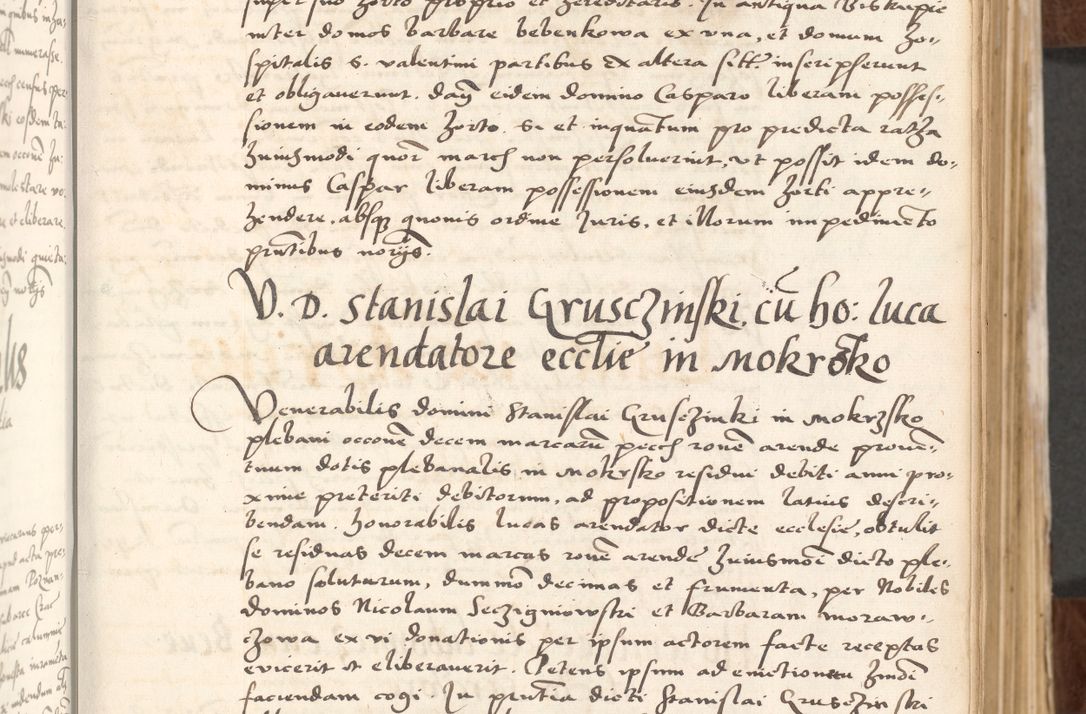 inter domos barbare bebenkowa ex vna, et domum ho-
spitalis s. valentini partibus ex altera sitt. inscripserunt
et obligauerunt. dan eidem domino Casparo liberam posses-
sionem in eodem horto. Si et inquatum pro predicta ratha
huiusmodi quor march non persoluerint, vt possit idem do-
minus Caspar liberam possessionem eiusdem horti appre-
hendere, absq quouis ordine Iuris, et illorum impedimento
pntibus norijs.
V. D. Stanislai Grusczinski, cu ho: luca
arendatore ecclie in Mokrsko
Venerabilis domini Stanislai Grusczinki in Mokrzsko
plebani occone decem marcaru pecch rone arende prouen-
tuum dotis plebanalis in Mokrsko residui debiti anni pro-
xime preteriti debitorum, ad propositionem latius descri-
bendam. Honorabilis lucas arendator dicte ecclesie, obtulit
se residuas decem marcas rone arende huiusmoe dicto ple-
bano soluturum, dummo decimas et frumenta, per Nobiles
dominos Nicolaum Seczigniowski et Barbaram moraw-
czowa ex vi donationis per ipsum actorem facte receptas
euicerit et eliberauerit. Petens ipsum ad euictionem hmoi
faciendam cogi. In pntia dicti Stanislai Grusczinski